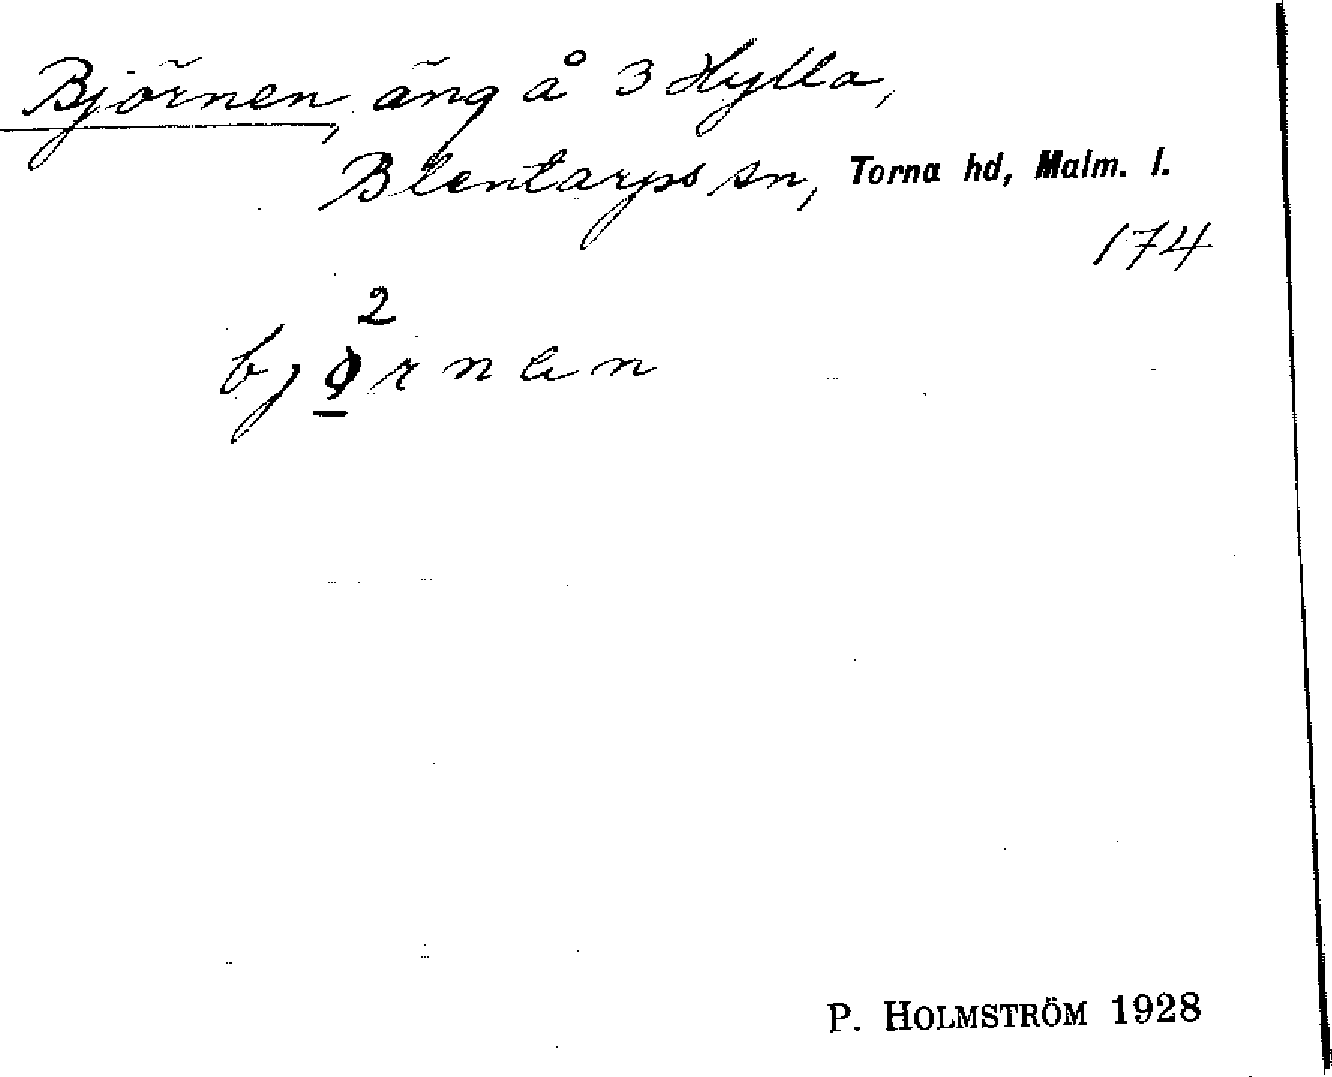 Björnen, äng å 3 Hylla,
Blentarps sn, Torna hd, Malm. l.
174
2
bjørnen
P. HOLMSTRÖM 1928